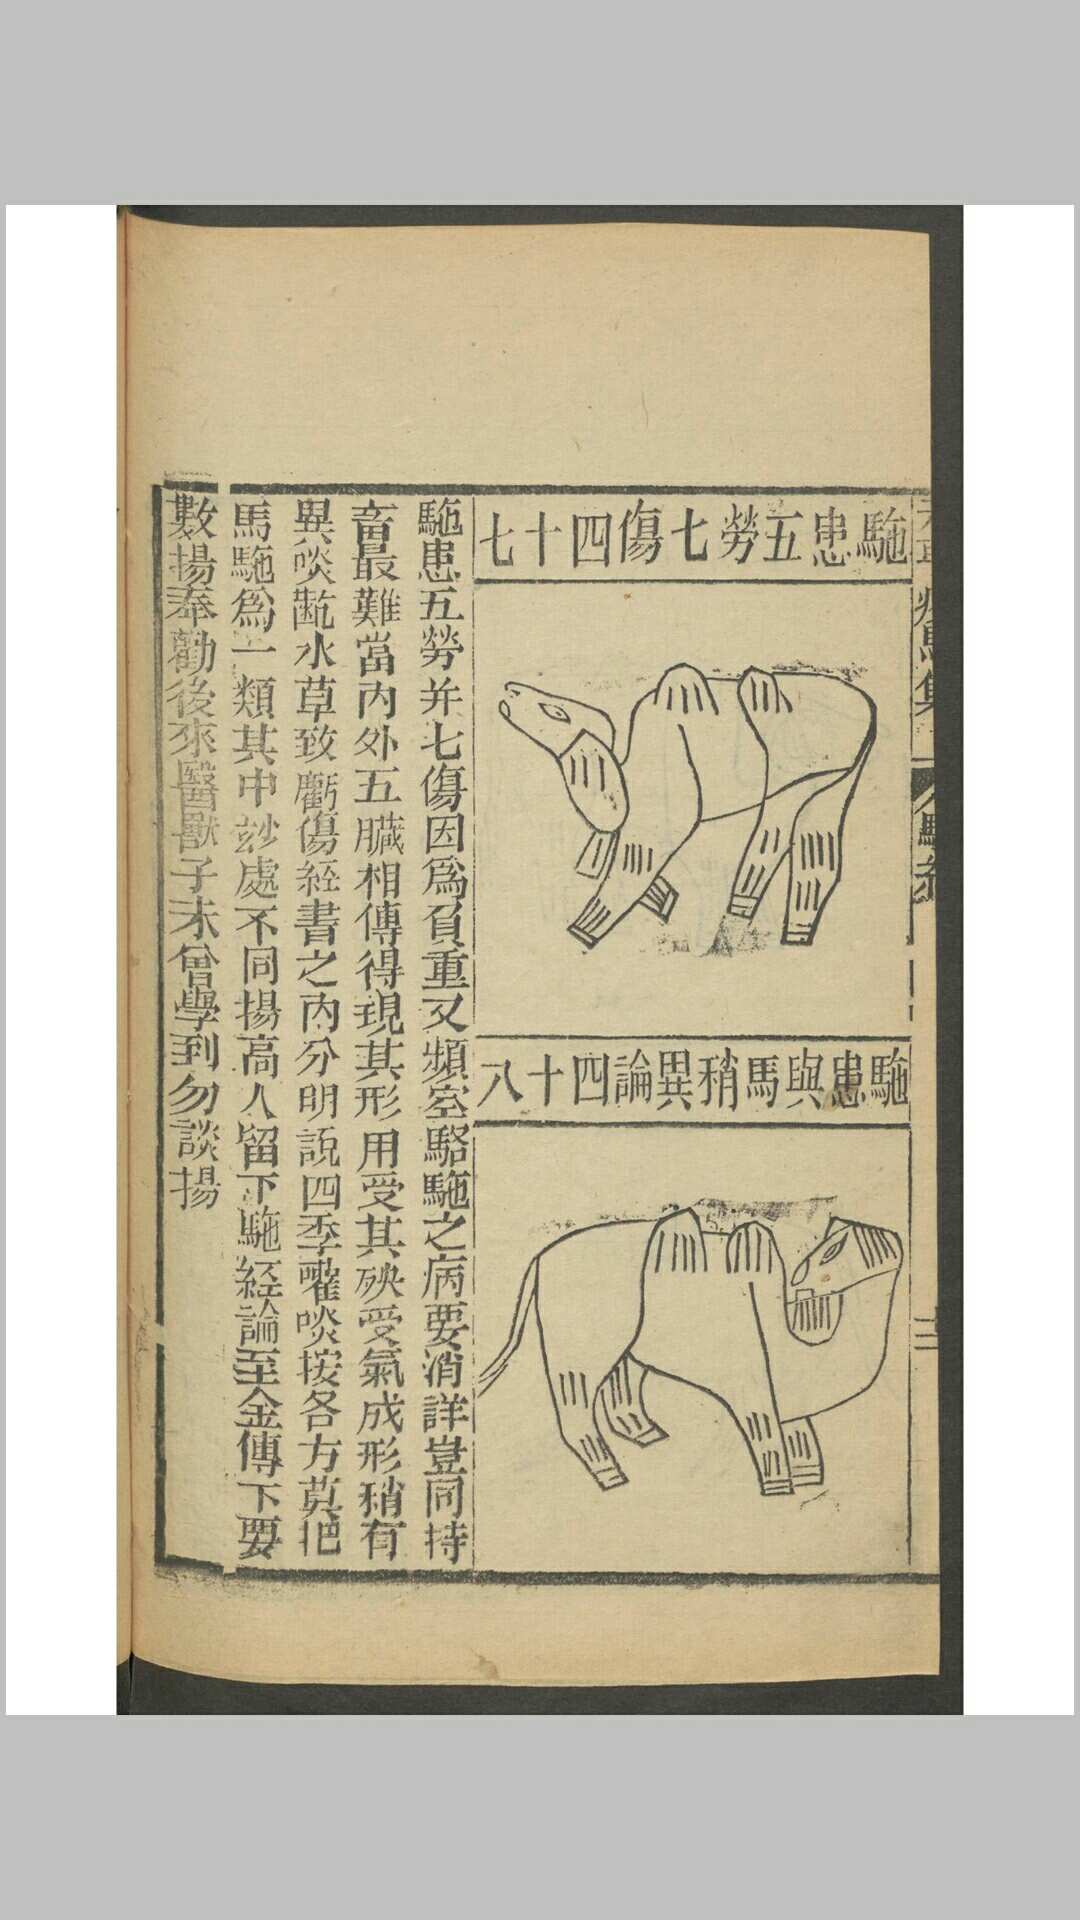 駞患五勞七傷四十七
駞患與馬稍異論四十八
駞患五勞并七傷因爲負重又頻空駱駞之病要消詳豈同持
畜最難當内外五臟相傳得現其形用受其殃受氣成形稍有
異啖齕水草致虧傷經書之内分明説四季嚾啖按各方莫把
馬駞爲一類其中玅處不同揚高人留下駞經論至金傳下要
數揚奉勸後來醫獸子未曾學到勿談揚